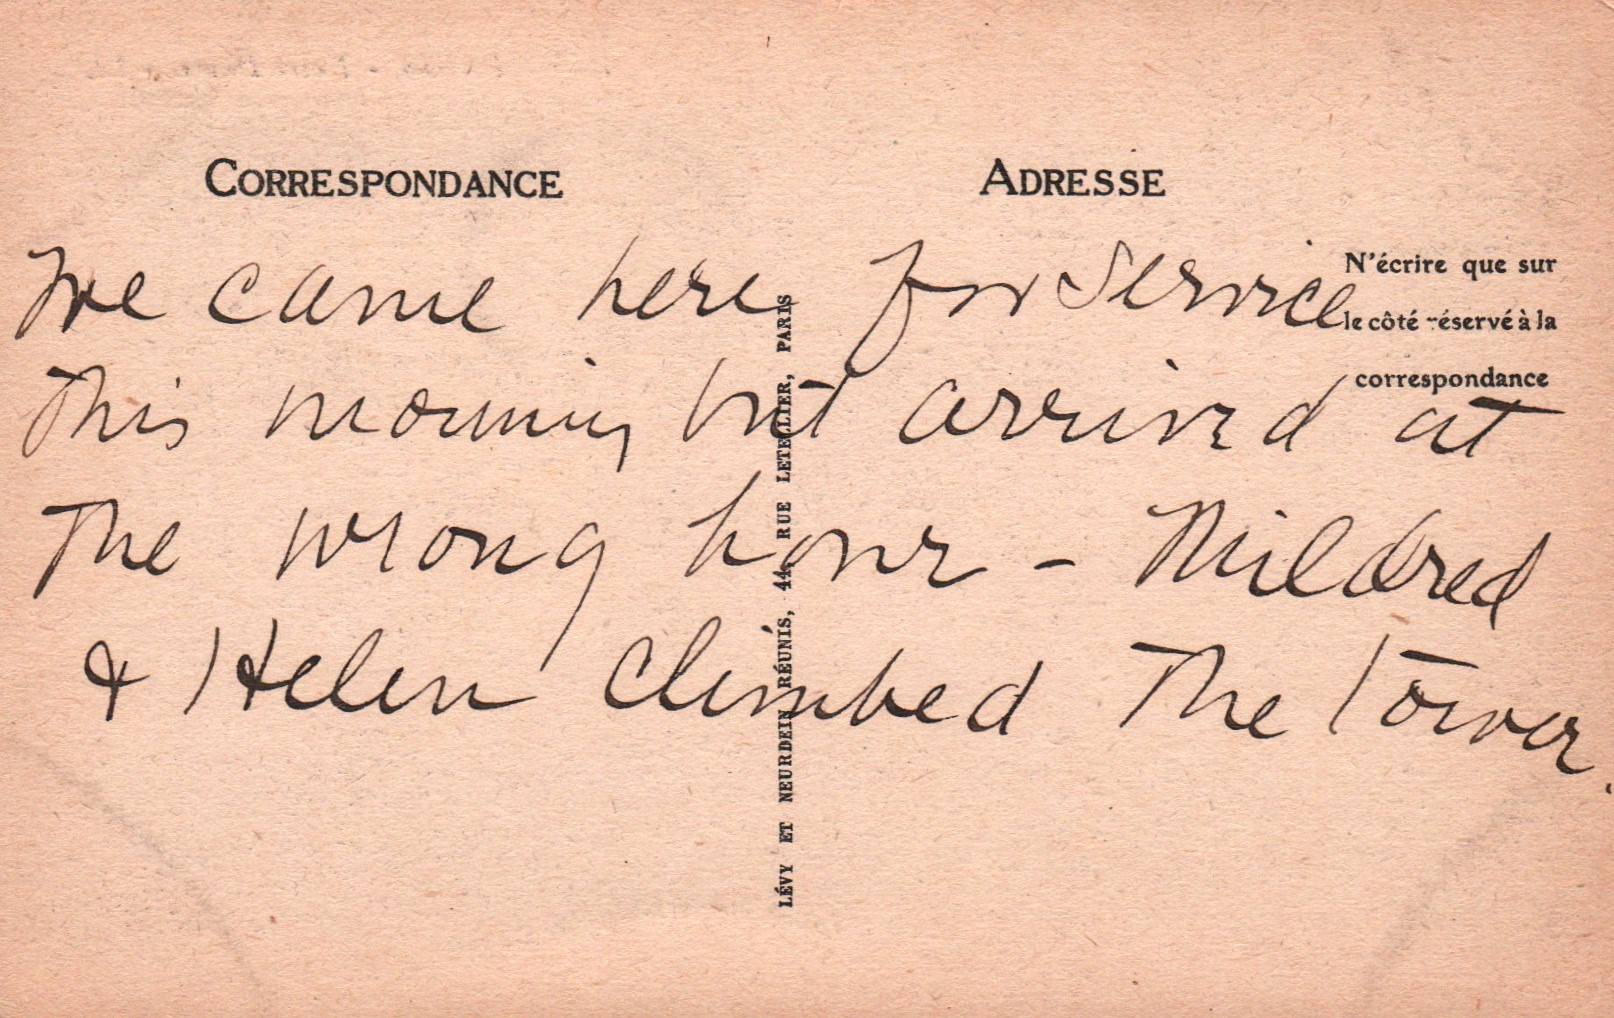 CORRESPONDANCE
ADRESSE
We came here for Service
This morning but arrived at
The wrong hour - Mildred
& Helen climbed The Tower.
N'écrire que sur
le côté réservé à la
correspondance
LÉVY ET NEURDEIN RÉUNIS, 44, RUE LETELLIER, PARIS